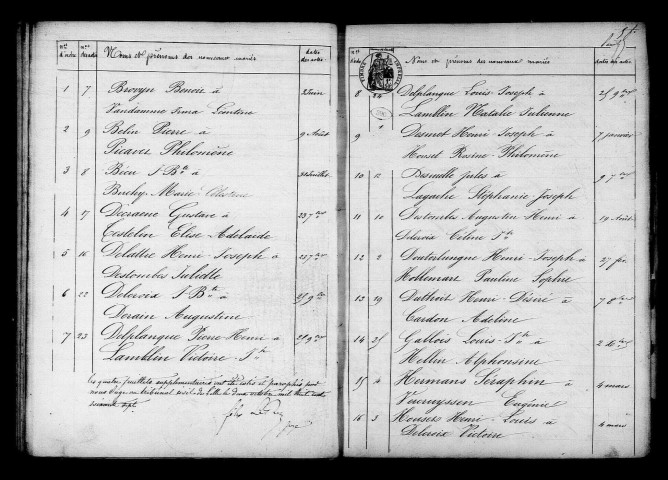 nos d'ordre nos des actes Noms et prénoms des nouveaux mariés dates des actes
1 7 Brouyn Benoit à 2 Juin
Vandamme Irma Léontine
2 9 Belin Pierre à 9 Août
Picavet Philomène
3 8 Bieu J. Bte à 31 Juillet
Berchy Marie Célestine
4 17 Decraene Gustave à 23 7bre
Castelin Elise Adélaïde
5 16 Delattre Henri Joseph à 23 7bre
Deslombes Juliette
6 22 Delcroix J. Bte à 25 9bre
Dorain Augustine
7 23 Delplanque Pierre Henri à 25 9bre
Lamblin Victoire Jh
Les quatre feuillets supplémentaires ont été cotés et paraphés par
nous Juge au tribunal civil de Lille le deux octobre mil huit cent
soixante sept
Noms et prénoms des nouveaux mariés dates des actes
8 24 Delplanque Louis Joseph à 25 9bre
Lamblin Natalie Julienne
9 1 Desmet Henri Joseph à 7 janvier
Houset Rosine Philomène
10 12 Desmulle Jules à 9 7bre
Lagache Stéphanie Joseph
11 10 Destombes Augustin Henri à 19 Août
Delcroix Céline Jh
12 2 Douterlungne Henri Joseph à 27 fév
Hollemart Pauline Sophie
13 19 Duthoit Henri Désiré à 7 8bre
Cardon Adeline
14 25 Gallois Louis Jh à 2 Xbre
Hellin Alphonsine
15 4 Hermans Séraphin à 4 mars
Vueruyssen Eugénie
16 3 Houset Henri Louis à 4 mars
Delcroix Victoire